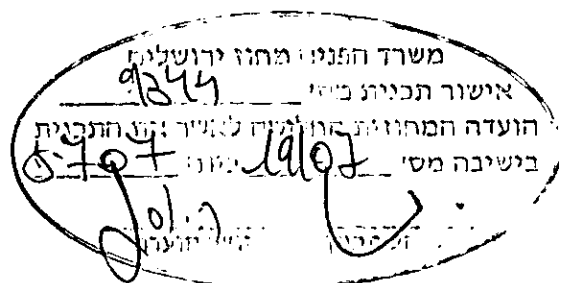 משרד הפנים מחוז ירושלים
אישור תכנית מס' 9344
הועדה המחוזית החליטה לאשר את התכנית
בישיבה מס' 19/07 ביום 5.7.07